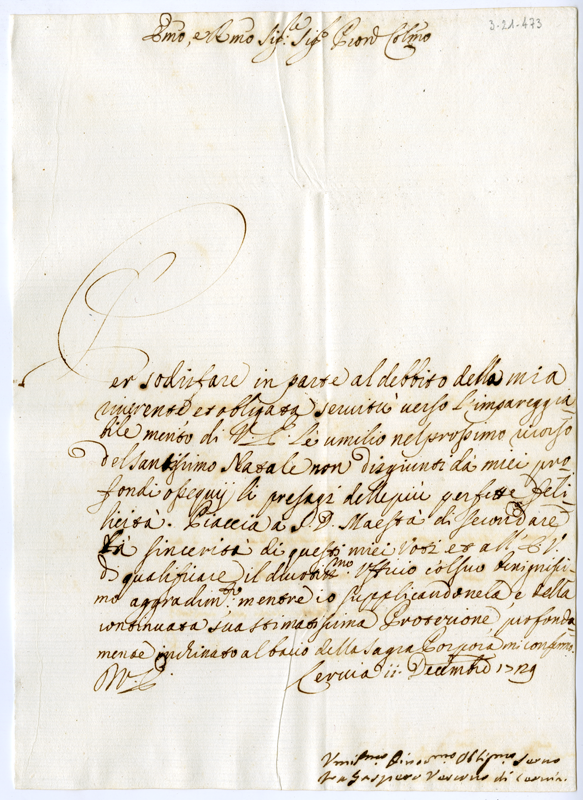 3-21-473
Emo, e Rmo Sig.r Sig.r Pron Colmo
Per sodisfare in parte al debbito della mia
riverente et obligata servitù verso l'impareggia
bile merito di V. E. le umilio nel prossimo ricorso
del Santissimo Natale non disgiunti da miei pro
fondi ossequij li presagi delle più perfette feli
licità. Piaccia a S. D. Maestà di secondare
la sincerità di questi miei voti et all' E V.
di qualificare il divotiss.mo Ufficio col suo benignissi
mo aggradim.to mentre io supplicandonela, e della
continuata sua stimatissima Protezione, profonda
mente inchinato al bacio della Sagra Porpora mi confermo
V. E. Cervia 11 Decembre 1729
Umilmo Divotmo Obligmo Servo
Fra Gaspero Vescovo di Cervia